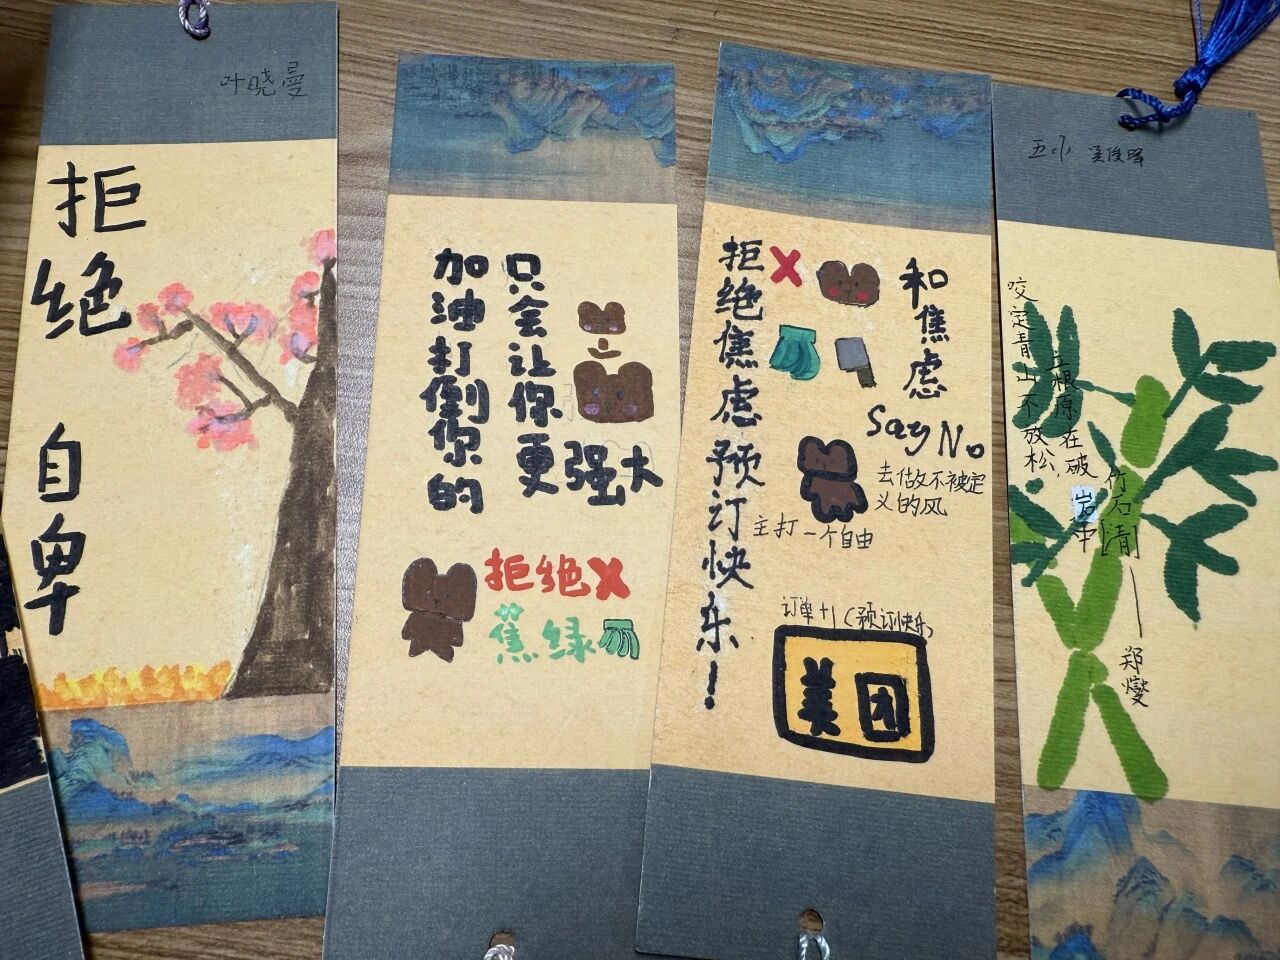 叶晓曼
拒绝
自卑
加油打倒你的
只会让你更强大
拒绝
蕉绿
拒绝焦虑预订快乐！
和焦虑
Say No
去做不被定
义的风
主打一个自由
订单+1（预订快乐）
美团
五小
咬定青山不放松，
立根原在破岩中
竹石[清]——郑燮